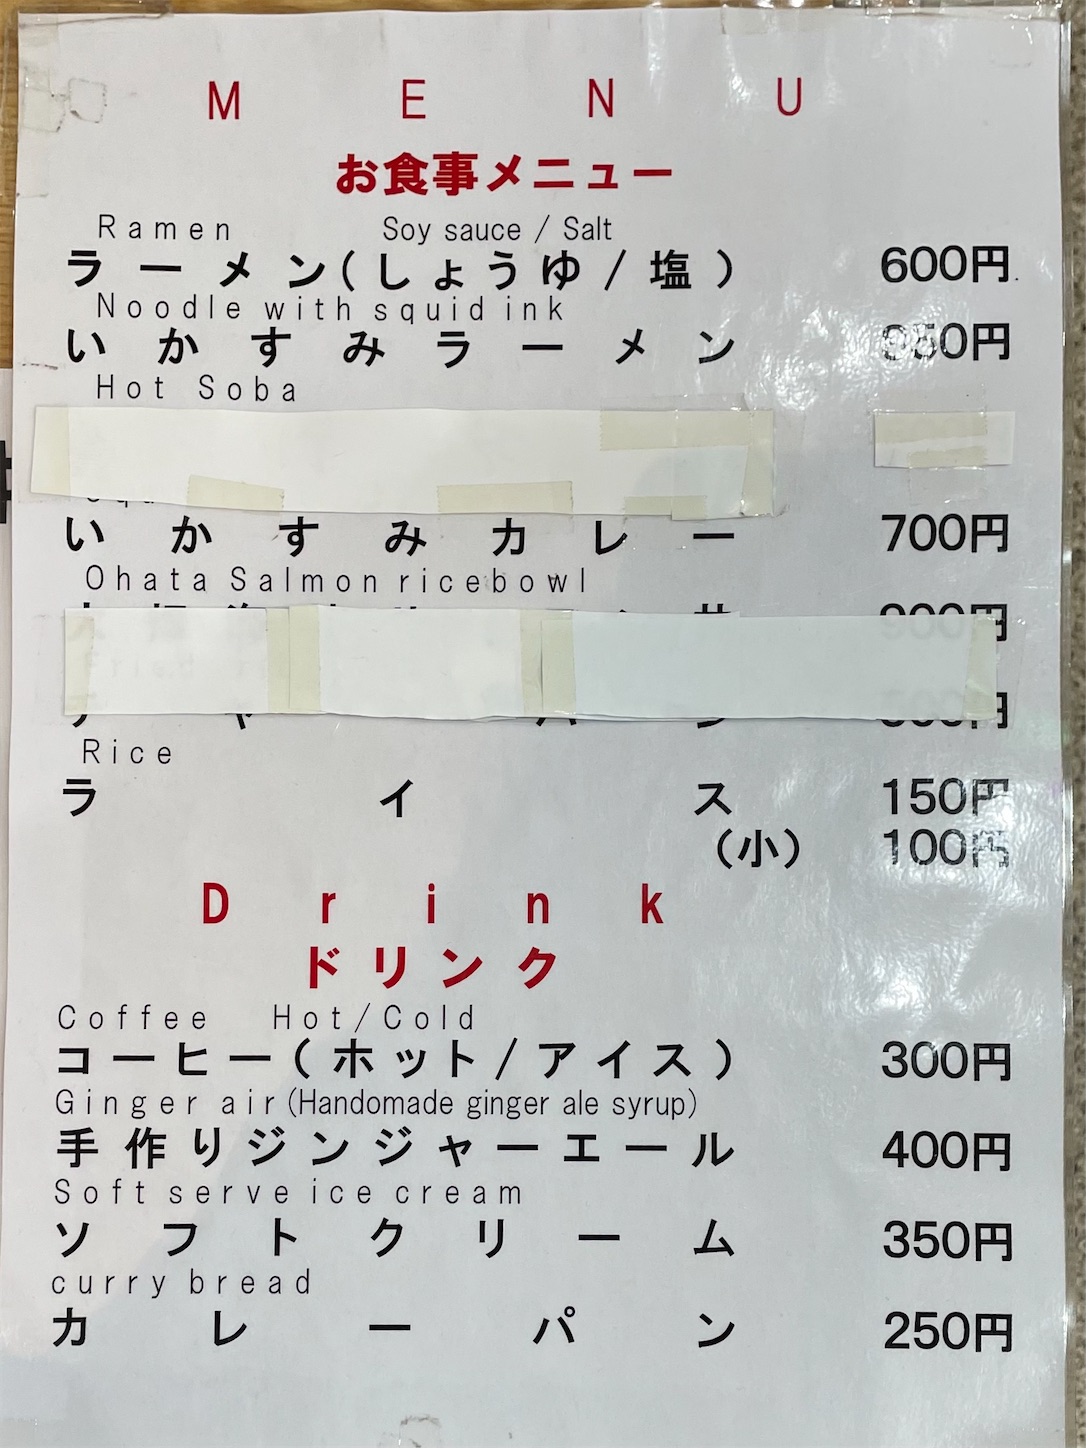 MENU
お食事メニュー
Ramen Soy sauce / Salt
ラーメン(しょうゆ/塩) 600円
Noodle with squid ink
いかすみラーメン 950円
Hot Soba
いかすみカレー 700円
Ohata Salmon ricebowl
900円
Rice
ライス 150円
(小) 100円
Drink
ドリンク
Coffee Hot/Cold
コーヒー(ホット/アイス) 300円
Ginger air(Handomade ginger ale syrup)
手作りジンジャーエール 400円
Soft serve ice cream
ソフトクリーム 350円
curry bread
カレーパン 250円